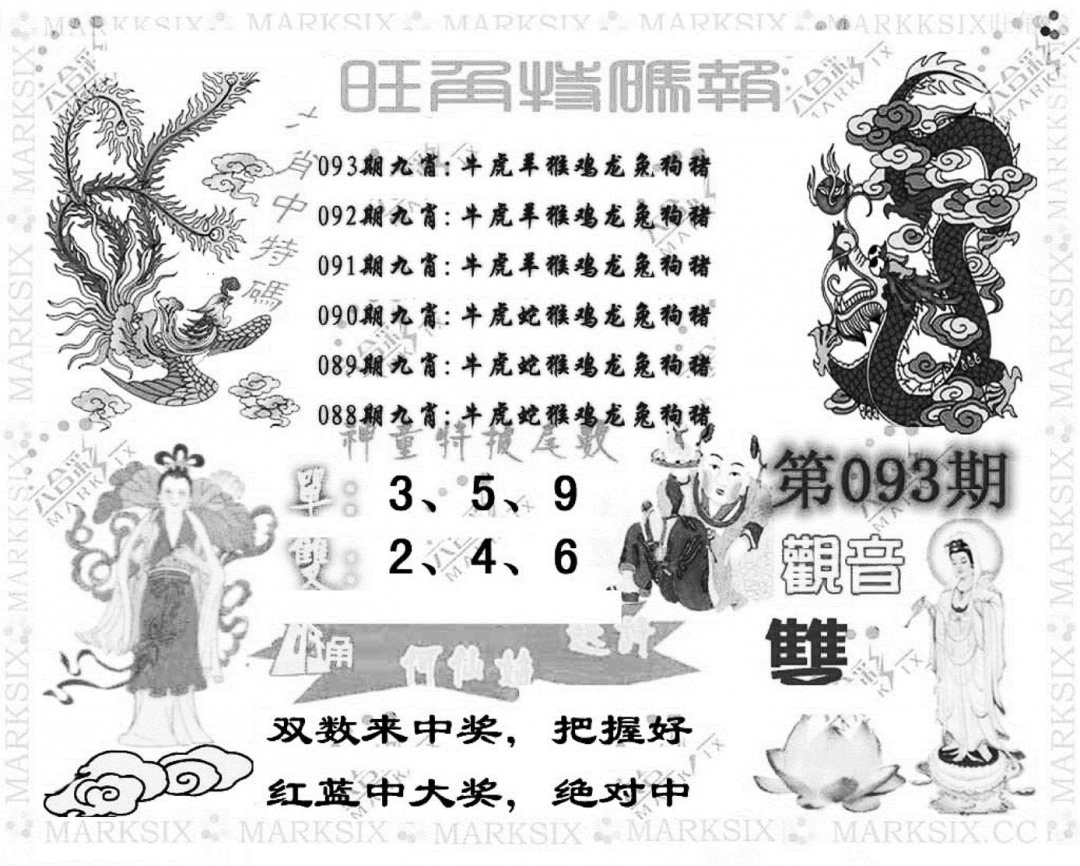 MARKSIX MARKSIX MARKSIX MARKKSIX
旺角特碼報
九肖中特碼
093期九肖:牛虎羊猴鸡龙兔狗猪
092期九肖:牛虎羊猴鸡龙兔狗猪
091期九肖:牛虎羊猴鸡龙兔狗猪
090期九肖:牛虎蛇猴鸡龙兔狗猪
089期九肖:牛虎蛇猴鸡龙兔狗猪
088期九肖:牛虎蛇猴鸡龙兔狗猪
神童特报尾数
單:3、5、9
雙:2、4、6
第093期
觀音
雙
旺角
何仙姑
双数来中奖,把握好
红蓝中大奖,绝对中
MARKSIX MARKSIX MARKSIX MARKSIX MARKSIX.CC